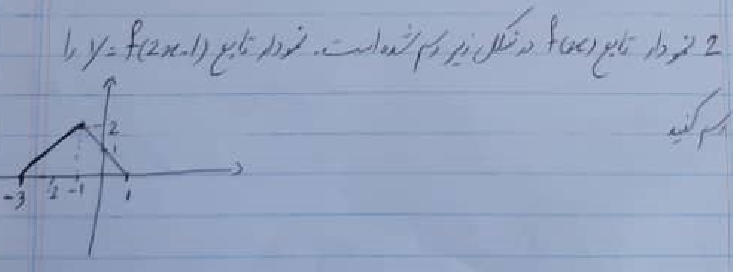 2 نمودار تابع f(x) در شکل زیر رسم شده است. نمودار تابع y = f(2x-1) را
رسم کنید
2
1
-3 -2 -1 1